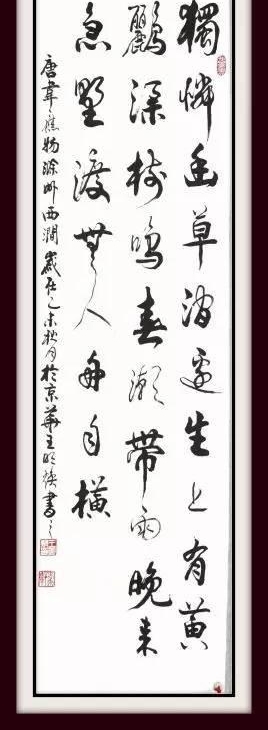 獨憐幽草澗邊生上有黃
鸝深樹鳴春潮帶雨晚来
急野渡無人舟自橫
唐韋應物滁州西澗歲在乙未秋月於京華王明書之